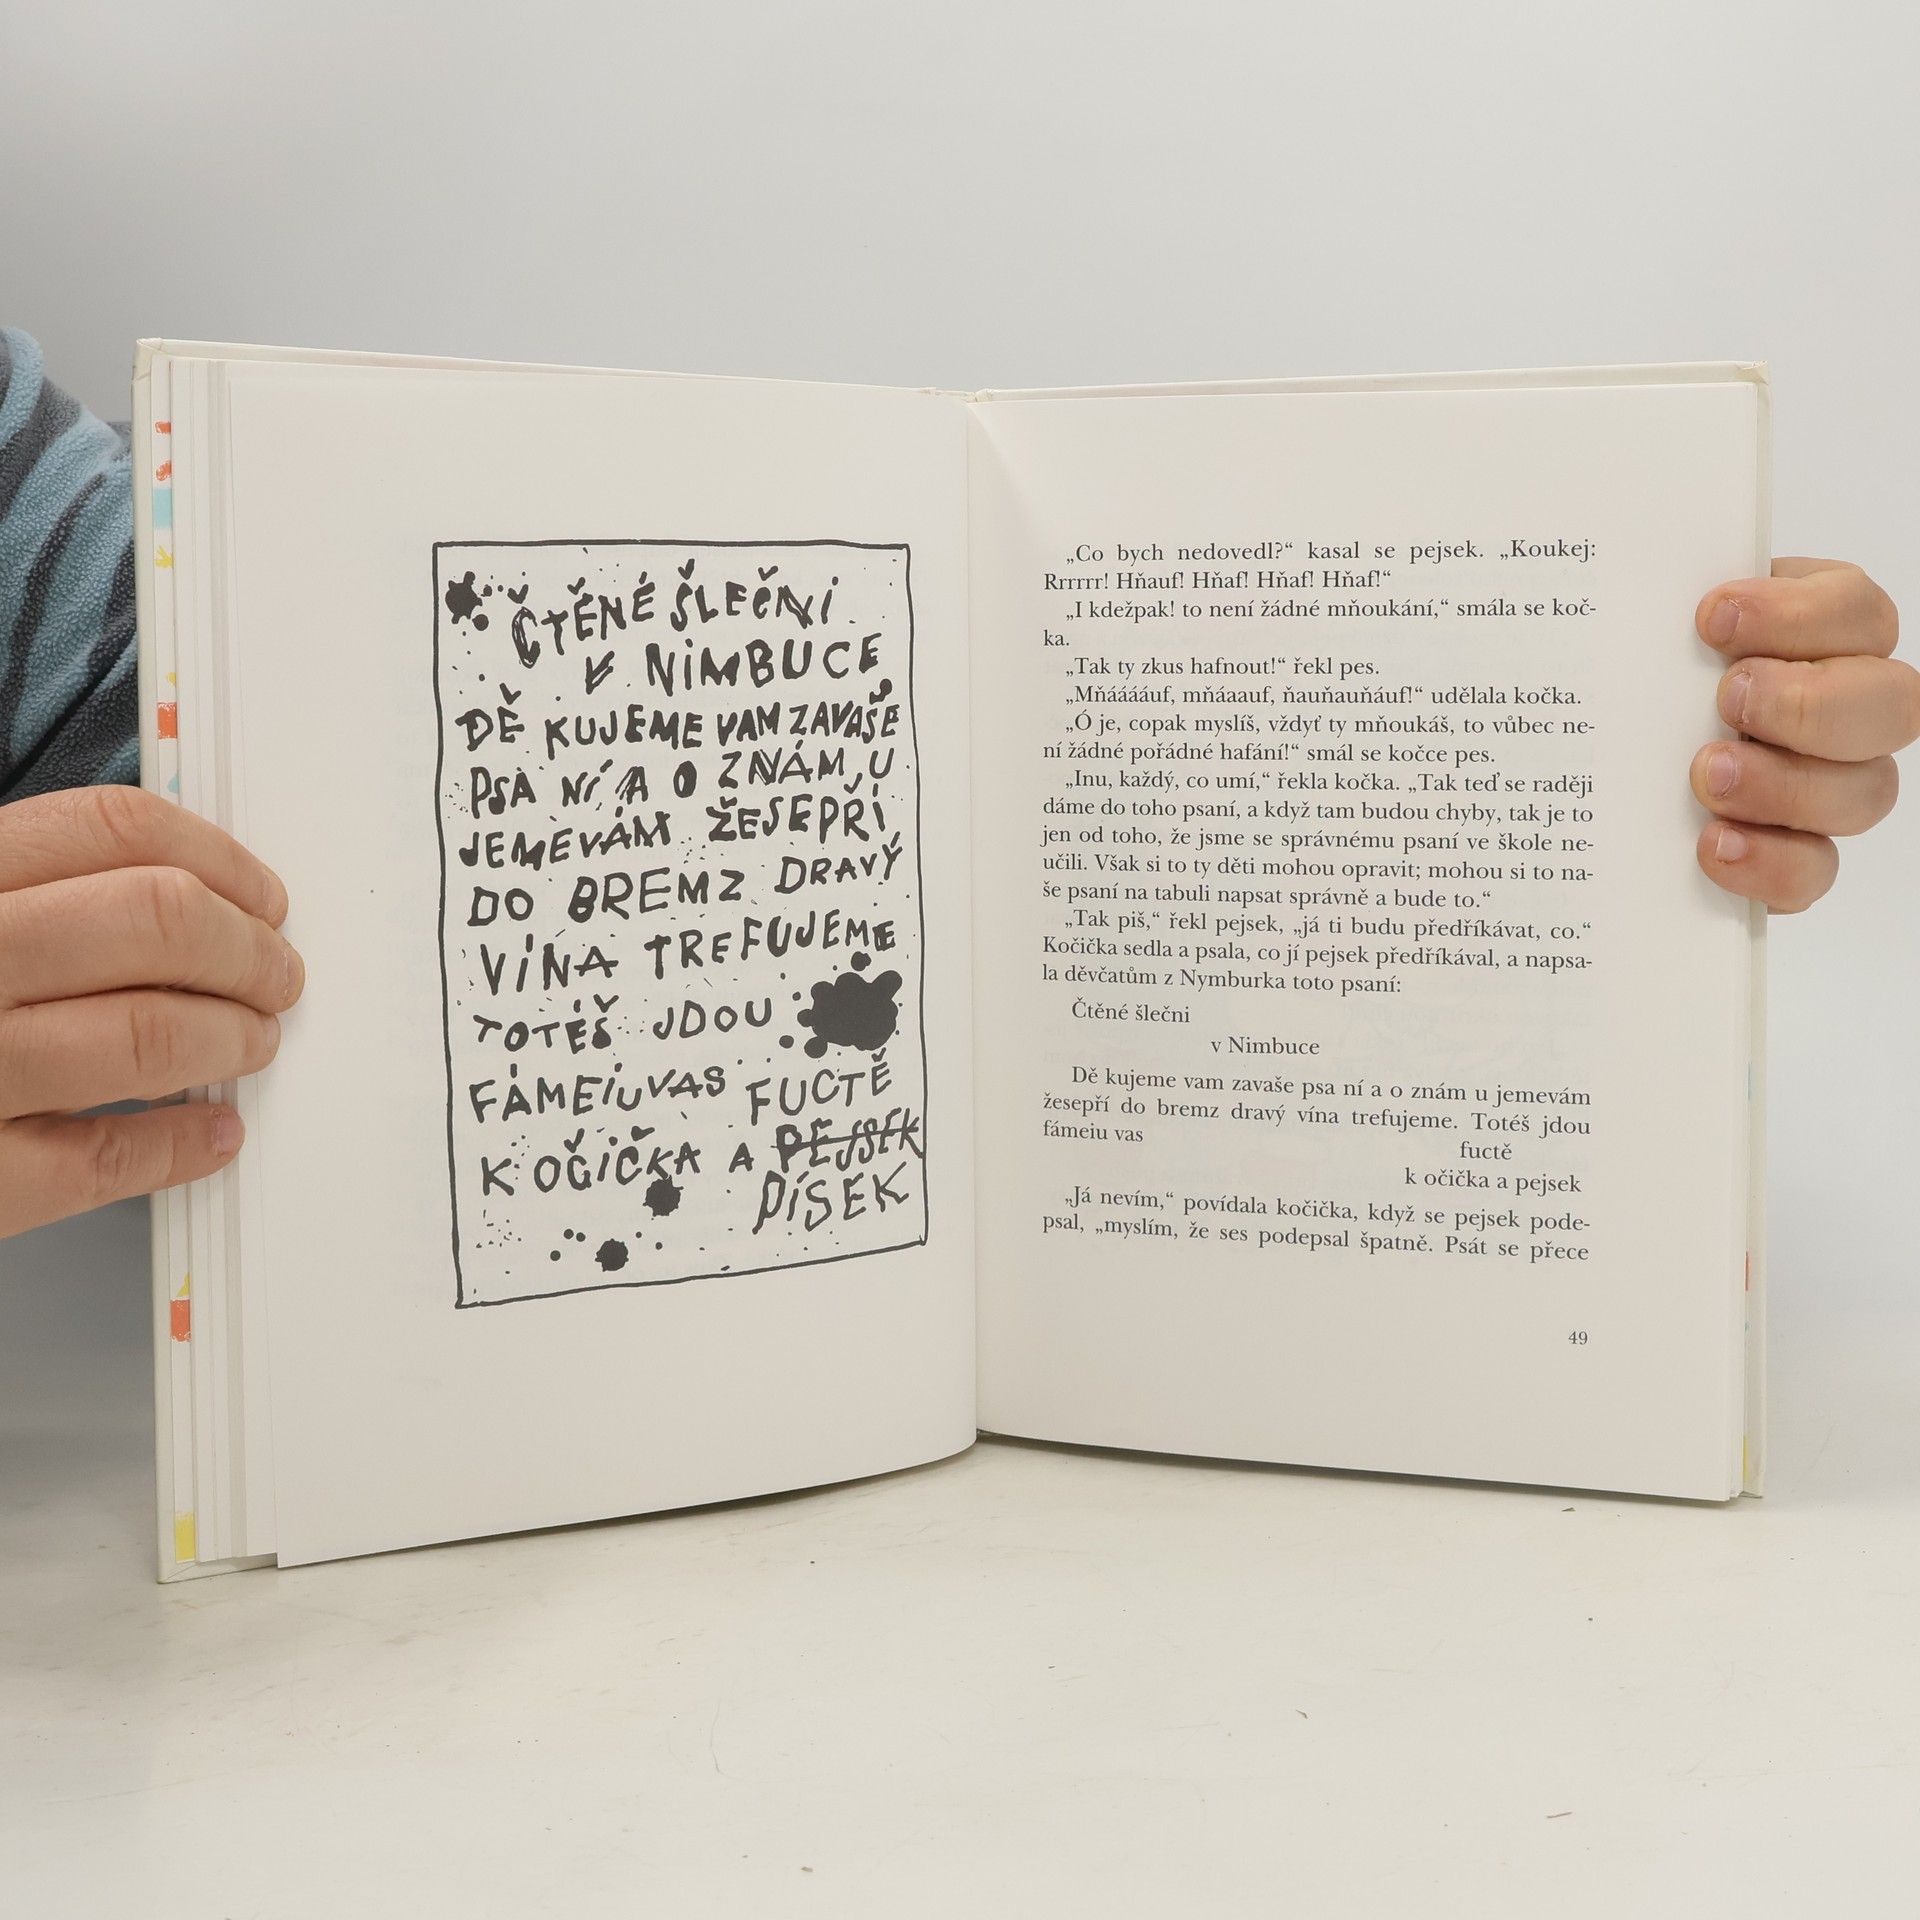 ČTĚNÉ ŠLEČNI
V NIMBUCE
DĚ KUJEME VAM ZAVAŠE
PSA NÍ A O ZNÁM U
JEMEVÁM ŽESEPŘÍ
DO BREMZ DRAVÝ
VÍNA TREFUJEME
TOTÉŠ JDOU
FÁMEIUVAS FUCTĚ
K OČIČKA A PEJSEK
PÍSEK
„Co bych nedovedl?“ kasal se pejsek. „Koukej:
Rrrrrr! Hňauf! Hňaf! Hňaf! Hňaf!“
„I kdežpak! to není žádné mňoukání,“ smála se koč-
ka.
„Tak ty zkus hafnout!“ řekl pes.
„Mňááááuf, mňáaauf, ňauňauňáuf!“ udělala kočka.
„Ó je, copak myslíš, vždyť ty mňoukáš, to vůbec ne-
ní žádné pořádné hafání!“ smál se kočce pes.
„Inu, každý, co umí,“ řekla kočka. „Tak teď se raději
dáme do toho psaní, a když tam budou chyby, tak je to
jen od toho, že jsme se správnému psaní ve škole ne-
učili. Však si to ty děti mohou opravit; mohou si to na-
še psaní na tabuli napsat správně a bude to.“
„Tak piš,“ řekl pejsek, „já ti budu předříkávat, co.“
Kočička sedla a psala, co jí pejsek předříkával, a napsa-
la děvčatům z Nymburka toto psaní:
Čtěné šlečni
v Nimbuce
Dě kujeme vam zavaše psa ní a o znám u jemevám
žesepří do bremz dravý vína trefujeme. Totéš jdou
fámeiu vas
fuctě
k očička a pejsek
„Já nevím,“ povídala kočička, když se pejsek pode-
psal, „myslím, že ses podepsal špatně. Psát se přece
49